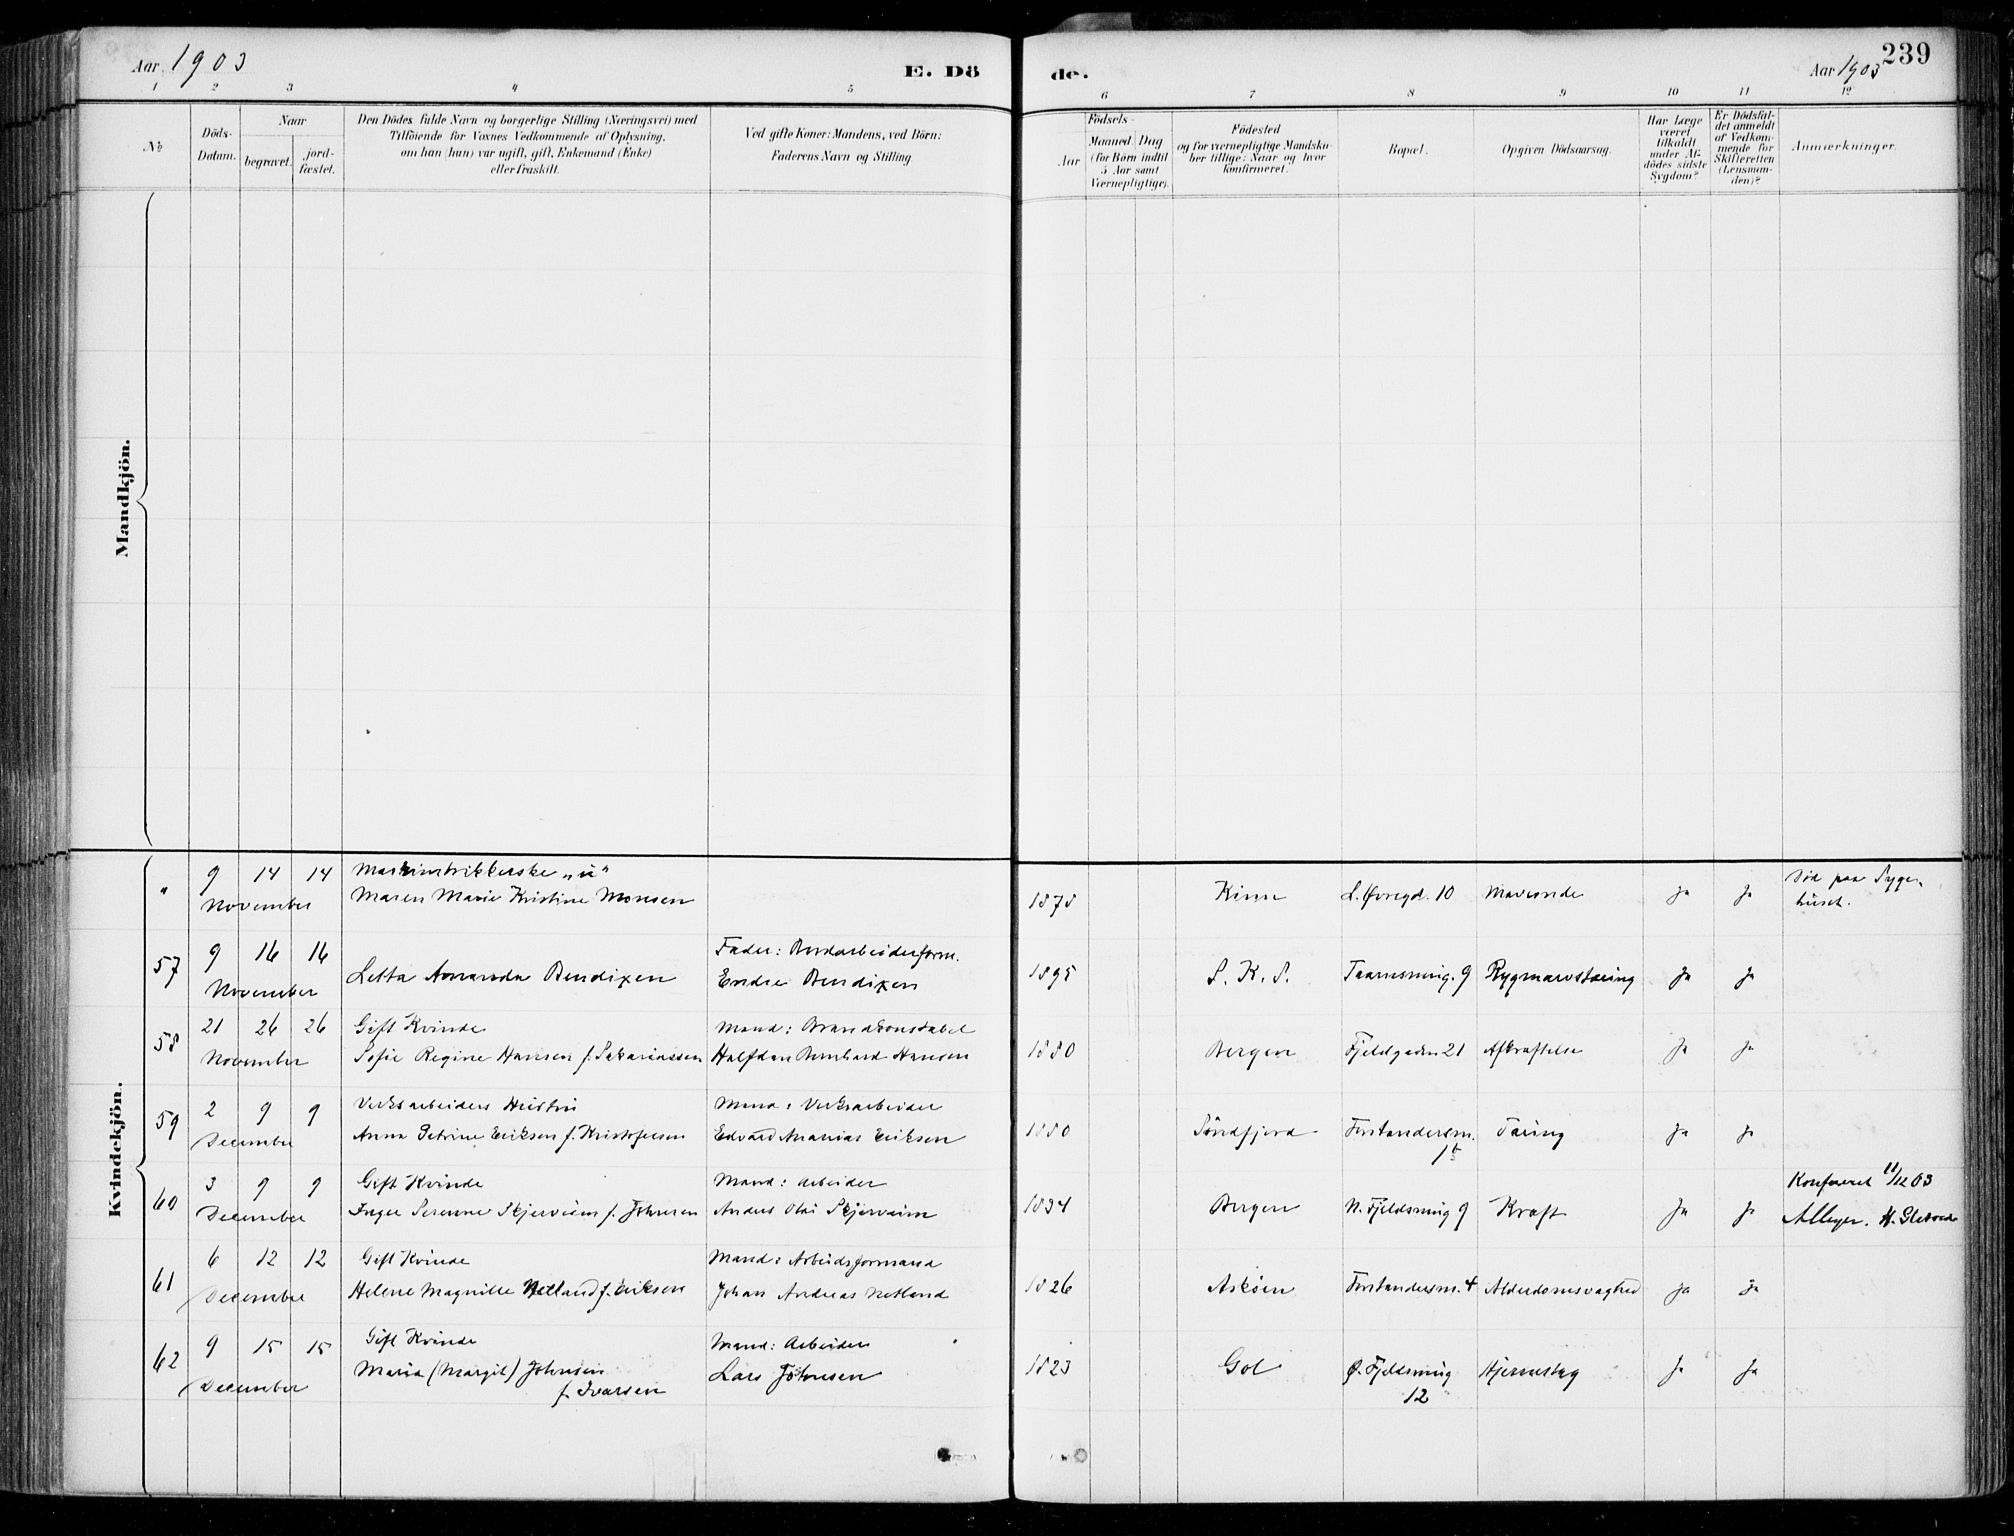 Aar 1903
E. Dö
de.
Aar 1903
239
1 2 3 4 5 6 7 8 9 10 11 12
No
Döds-
Datum.
Naar
begravet.
jord-
fæstet.
Den Dödes fulde Navn og borgerlige Stilling (Næringsvei) med
Tilföiende for Voxnes Vedkommende af Oplysning,
om han (hun) var ugift, gift, Enkemand (Enke)
eller fraskilt.
Ved gifte Koner: Mandens, ved Börn:
Faderens Navn og Stilling.
Födsels-
Aar
Maaned Dag
(for Börn indtil
5 Aar samt
Værnepligtige).
Födested
og for værnepligtige Mandska-
ber tillige: Naar og hvor
konfirmeret.
Bopæl.
Opgiven Dödsaarsag.
Har Læge
været
tilkaldt
under Af-
dödes sidste
Sygdom?
Er Dödsfal-
det anmeldt
af Vedkom-
mende for
Skifteretten
(Lensman-
den)?
Anmærkninger.
Mandkjön.
Kvindekjön.
" 9 14 14 Maskinstrikkerske "u"
November Maren Marie Kristine Monsen 1878 Kinn L. Øvregd. 10 Mavesaar ja ja Død paa Syge-
huset.
57 9 16 16 Fader:
November Letta Amanda Bendixen Endre Bendixen 1895 S. K. S. 9 Rygmarvstæring ja ja
58 21 26 26 Gift Kvinde Mand: Brandkonstabel
November Sofie Regine Hansen f. Sakariassen Halfdan Bernhard Hansen 1880 Bergen Fjeldgaden 21 Afkræftelse ja ja
59 2 9 9 Verksarbeiders Hustru Mand: Verksarbeider
December Anna Petrine Eriksen f. Kristofersen Edvard Ananias Eriksen 1880 Söndfjord Forstandersm. Tæring ja ja
15
60 3 9 9 Gift Kvinde Mand: Arbeider Konfereret 11/12 03
December Inger Serenne Skjerveim f. Johnsen Anders Olai Skjerveim 1834 Bergen N. Fjeldsmug 9 Kræft ja ja
61 6 12 12 Gift Kvinde Mand: Arbeidsformand
December Helene Magnille Netland f. Eriksen Johan Andreas Netland 1826 Askøen Forstandersm. 4 Alderdomssvaghed ja ja
62 9 15 15 Gift Kvinde Mand: Arbeider
December Maria (Margit) Johnsen Lars Johnsen 1823 Gol Ø. Fjeldsmug Hjerneslag ja ja
f. Ivarsen 12